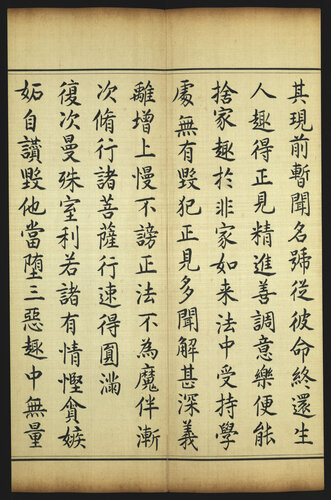 其現前暫聞名號從彼命終還生
人趣得正見精進善調意樂便能
捨家趣於非家如来法中受持學
處無有毀犯正見多聞解甚深義
離增上慢不謗正法不為魔伴漸
次脩行諸菩薩行速得圓滿
復次曼殊室利若諸有情慳貪嫉
妬自讚毀他當墮三惡趣中無量